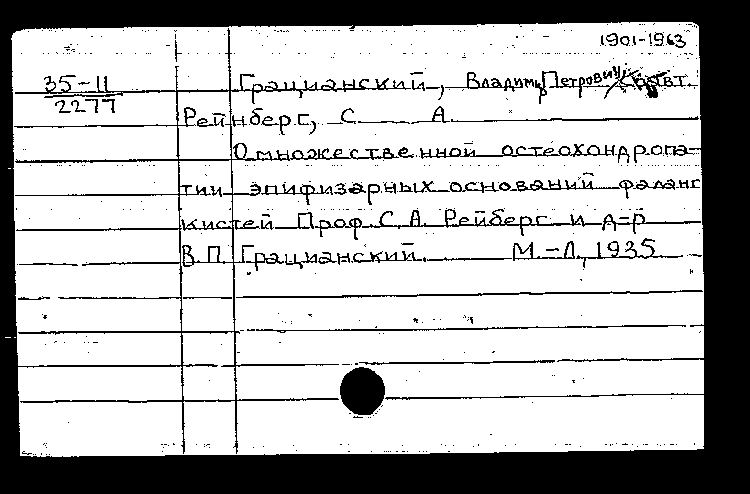 1901-1963
35-11
2277
Грацианский, Владимир Петрович авт.
Рейнберг, С. А.
О множественной остеохондропа-
тии эпифизарных оснований фаланг
кистей Проф. С. А. Рейберг и д-р
В. П. Грацианский. М.-Л., 1935